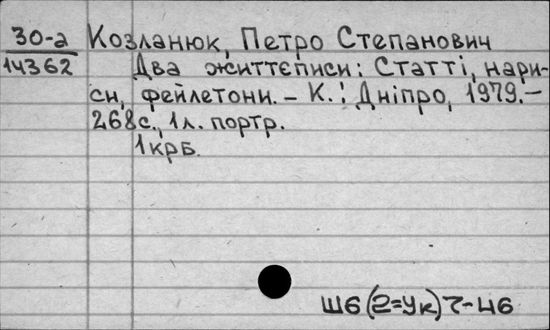 30-а Козланюк, Петро Степанович
14362 Два життєписи: Статті, нари-
си, фейлетони. – К.: Дніпро, 1979. –
268с., 1л. портр.
1крб.
Ш6(2=Ук)7-46